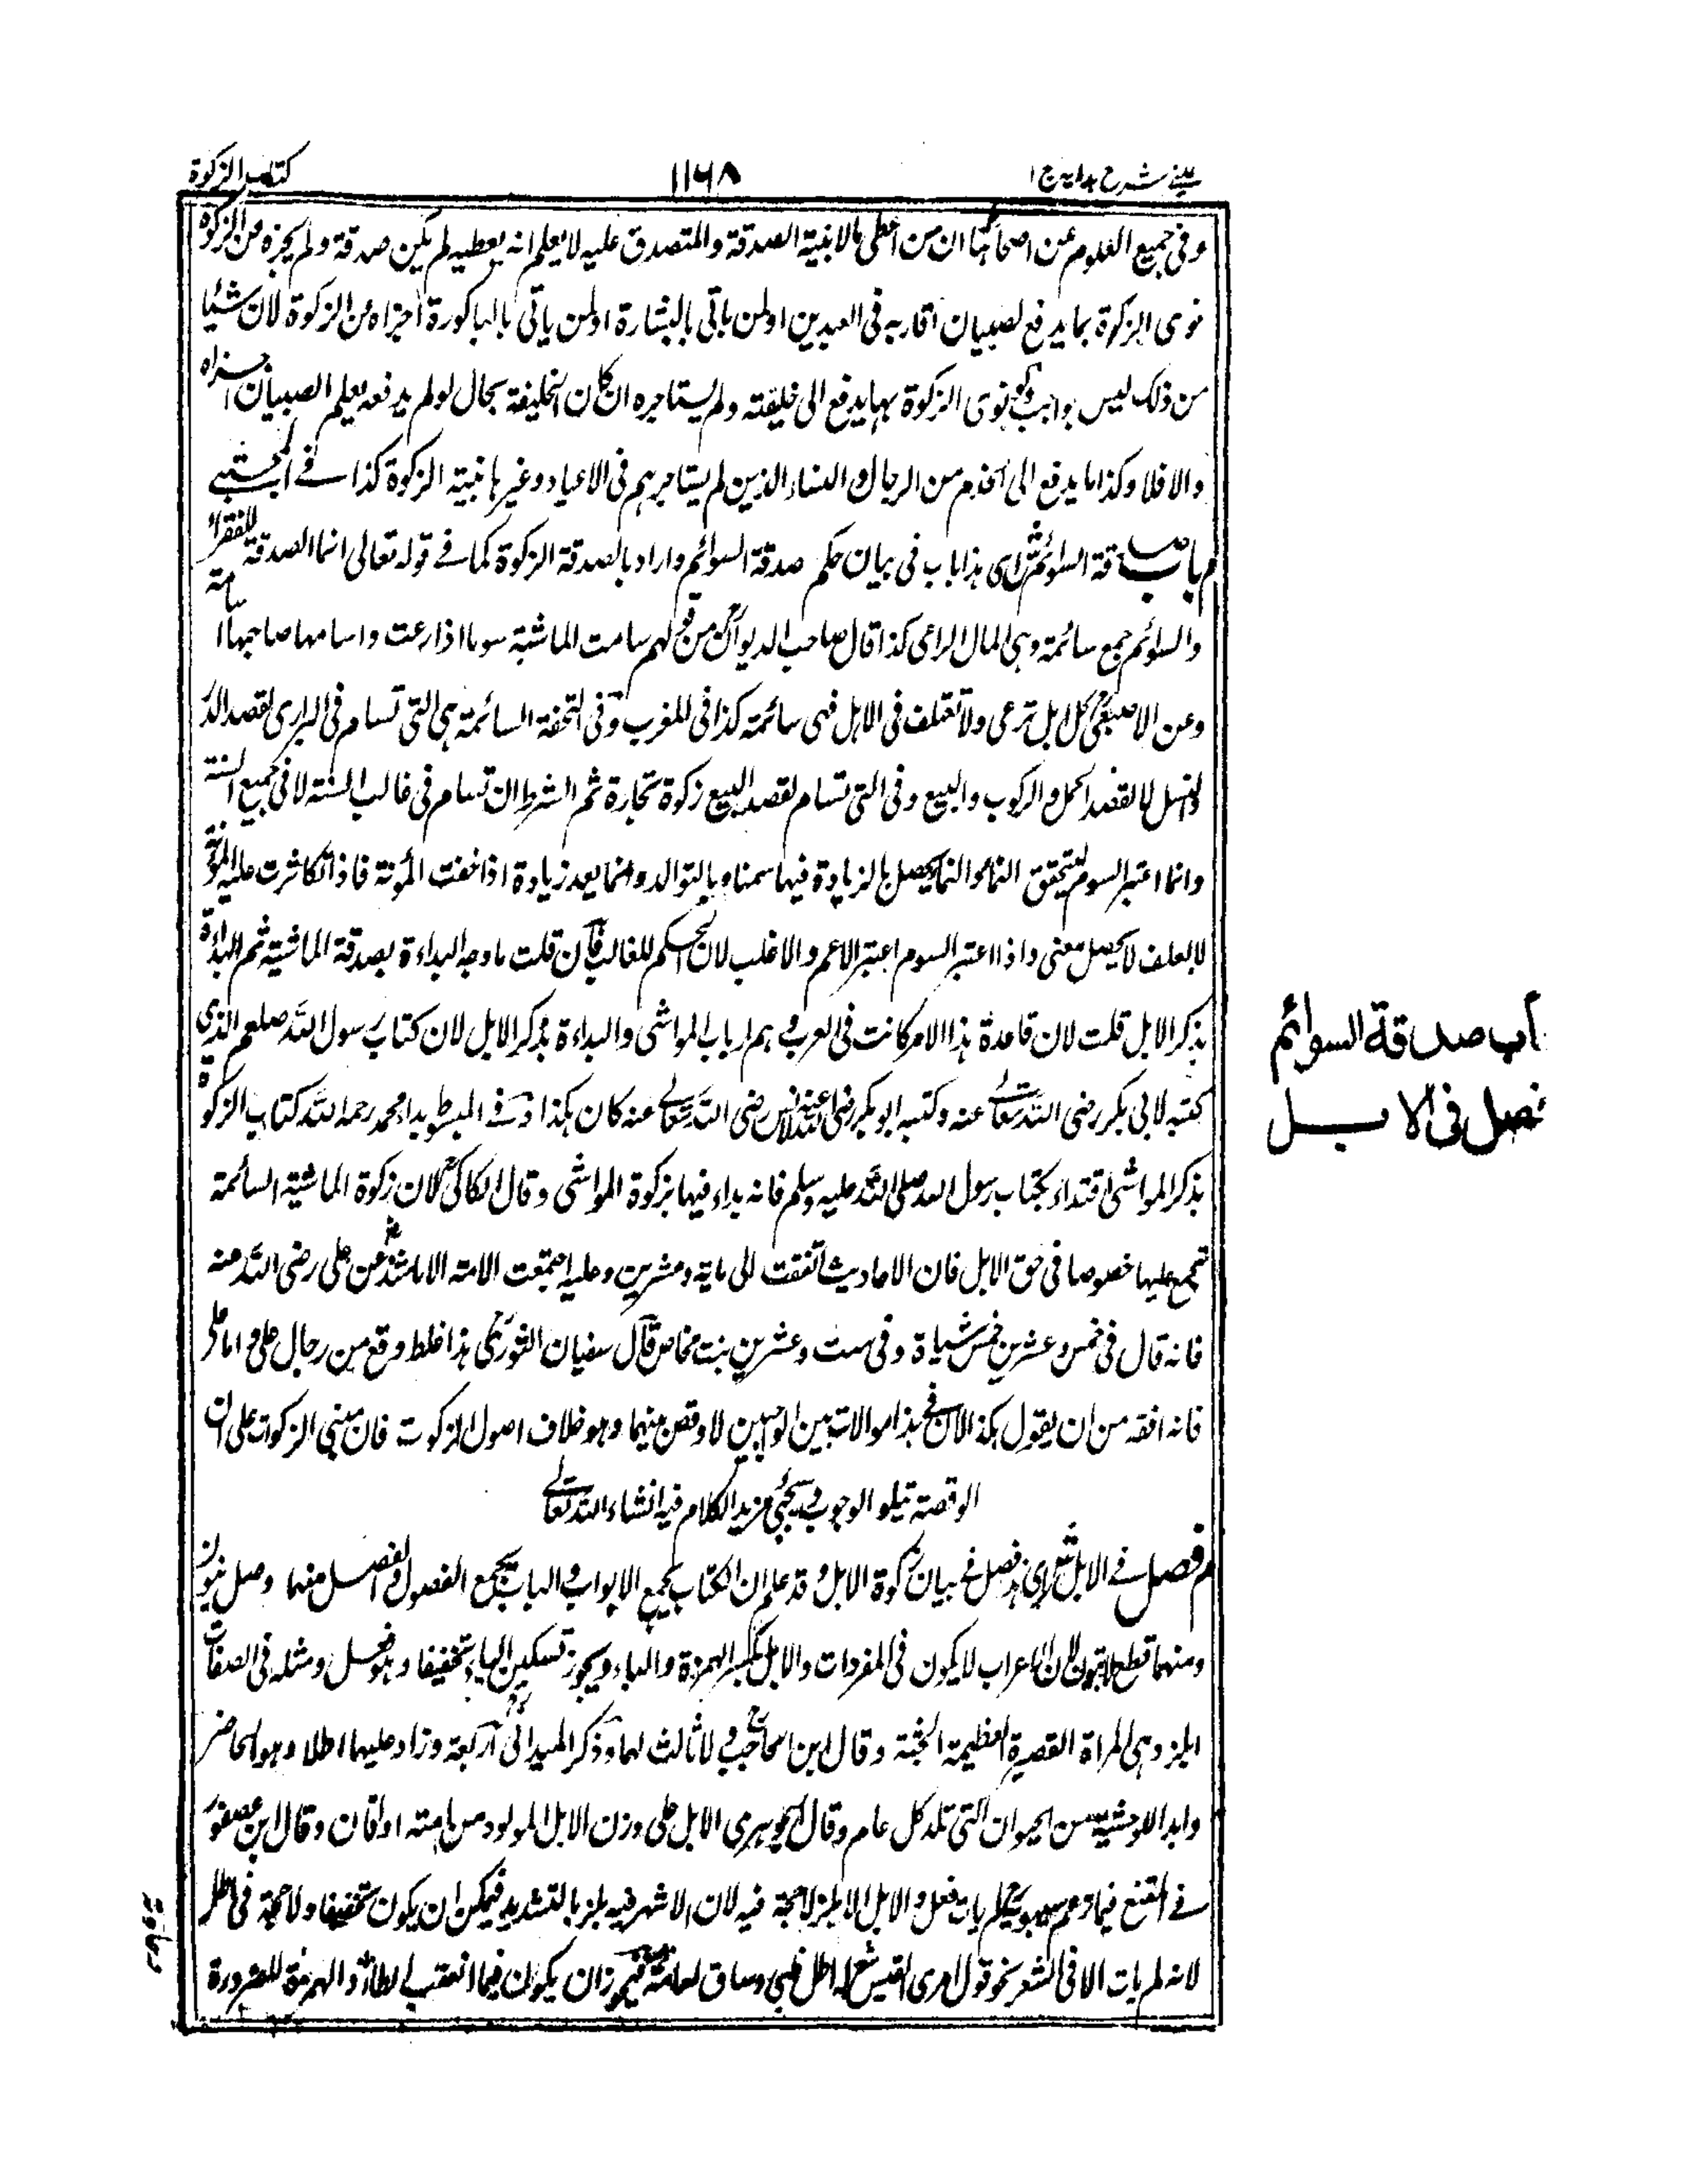 عینی شرح هدایه ج ۱
۱۱۶۸
كتاب الزكوة
وفى جميع العلوم عن اصحابنا ان من اعطى مالا بنية الصدقة والمتصدق عليه لا يعلم انه يعطيه لم يكن صدقة ولم يجزه من الزكوة
نوى الزكوة بما يدفع لصبيان اقاربه فى العيدين او لمن ياتى بالبشارة او لمن ياتى بالباكورة اجزاه عن الزكوة لان شيئا
من ذلك ليس بواجب ولو نوى الزكوة بما يدفع الى خليفته ولم يستاجره ان كان الخليفة بحال لو لم يدفعه يعلم الصبيان اجزاه
والا فلا وكذا ما يدفع الى الخدم من الرجال والنساء الذين لم يستاجرهم فى الاعياد وغيرها بنية الزكوة كذا فے المجتبے
م باب صدقة السوائم ش اى هذا باب فى بيان حكم صدقة السوائم واراد بالصدقة الزكوة كما فے قوله تعالى انما الصدقة للفقراء
والسوائم جمع سائمة وهى المال الراعى كذا قال صاحب الديوان من قولهم سامت الماشية سوما اذا رعت واسامها صاحبها اسامة
وعن الاصمعى كل ابل ترعى ولا تعلف فى الاهل فهى سائمة كذا فى المغرب وفى التحفة السائمة هى التى تسام فى البرارى لقصد الدر
والنسل لا لقصد الحمل والركوب والبيع وفى التى تسام لقصد البيع زكوة تجارة ثم الشرط ان تسام فى غالب السنة لا فى جميع السنة
وانما اعتبر السوم ليتحقق النماء والنماء يحصل بالزيادة فيها سمنا وبالتوالد وانما يعد زيادة اذا خفت المؤنة فاذا تكاثرت عليه المؤنة
لا بعلف لا يحصل معنى واذا اعتبر السوم اعتبر الاعم والاغلب لان الحكم للغالب فان قلت ما وجه البداءة بصدقة الماشية ثم البداءة
بذكر الابل قلت لان قاعدة هذا الامر كانت فى العرب وهم ارباب المواشى والبداءة بذكر الابل لان كتاب رسول الله صلعم الذى
كتبه لابى بكر رضى الله تعالے عنه وكتبه ابو بكر رضى الله عنه لانس رضى الله تعالے عنه كان هكذا وفے المبسوط بدا محمد رحمه الله كتاب الزكوة
بذكر المواشى اقتداء بكتاب رسول الله صلى الله عليه وسلم فانه بداء فيها بزكوة المواشى وقال الكاكى لان زكوة الماشية السائمة
تجمع عليها خصوصا فى حق الابل فان الاحاديث اتفقت الى ماية وعشرين وعليه اجتمعت الامة الا ما شذ عن على رضى الله عنه
فانه قال فى خمس وعشرين خمس شياة وفى ست وعشرين بنت مخاض قال سفيان الثورى هذا غلط وقع من رجال على اما على
فانه افقه من ان يقول هكذا لان فى هذا موالات بين الوجبين لا وقص بينهما وهو خلاف اصول الزكوت فان مبنى الزكوت على ان
الوقصة تتلو الوجوب وسيجئ مزيد الكلام فيه انشاء الله تعالے
م فصل فے الابل ش اى هذا فصل فے بيان زكوة الابل وقد علم ان الكتاب يجمع الابواب والباب يجمع الفصول والفصل منها وصل ينون
ومنهما قطع لا ينون لان الاعراب لا يكون فى المفردات والابل بكسر الهمزة والباء ويجوز تسكين الباء تخفيفا وهو فعل ومثله فى الصفات
ابلز وهى المراة القصيرة العظيمة الجثة وقال ابن الحاجب ولا ثالث لهما وذكر الميدانى اربعة وزاد عليهما اطلا وهو الخاصر
وابدا للوحشية من الحيوان التى تلد كل عام وقال الجوهرى الابل على وزن الابل المولود من امته او اتان وقال ابن عصفور
فے المقنع فيما زعم سيبويه لم يات فعل والابل الابلز لا حجة فيه لان الاشهر فيه بلز بالتشديد فيمكن ان يكون تخفيفا ولا حجة فى اطل
لانه لم يات الا فى الشعر نحو قول امرى القيس شعر له اطل ظبى وساق لعامة فيجوز ان يكون فيما اتبعت الطاء والهمزة للضرورة
باب صدقة السوائم
فصل فى الابل